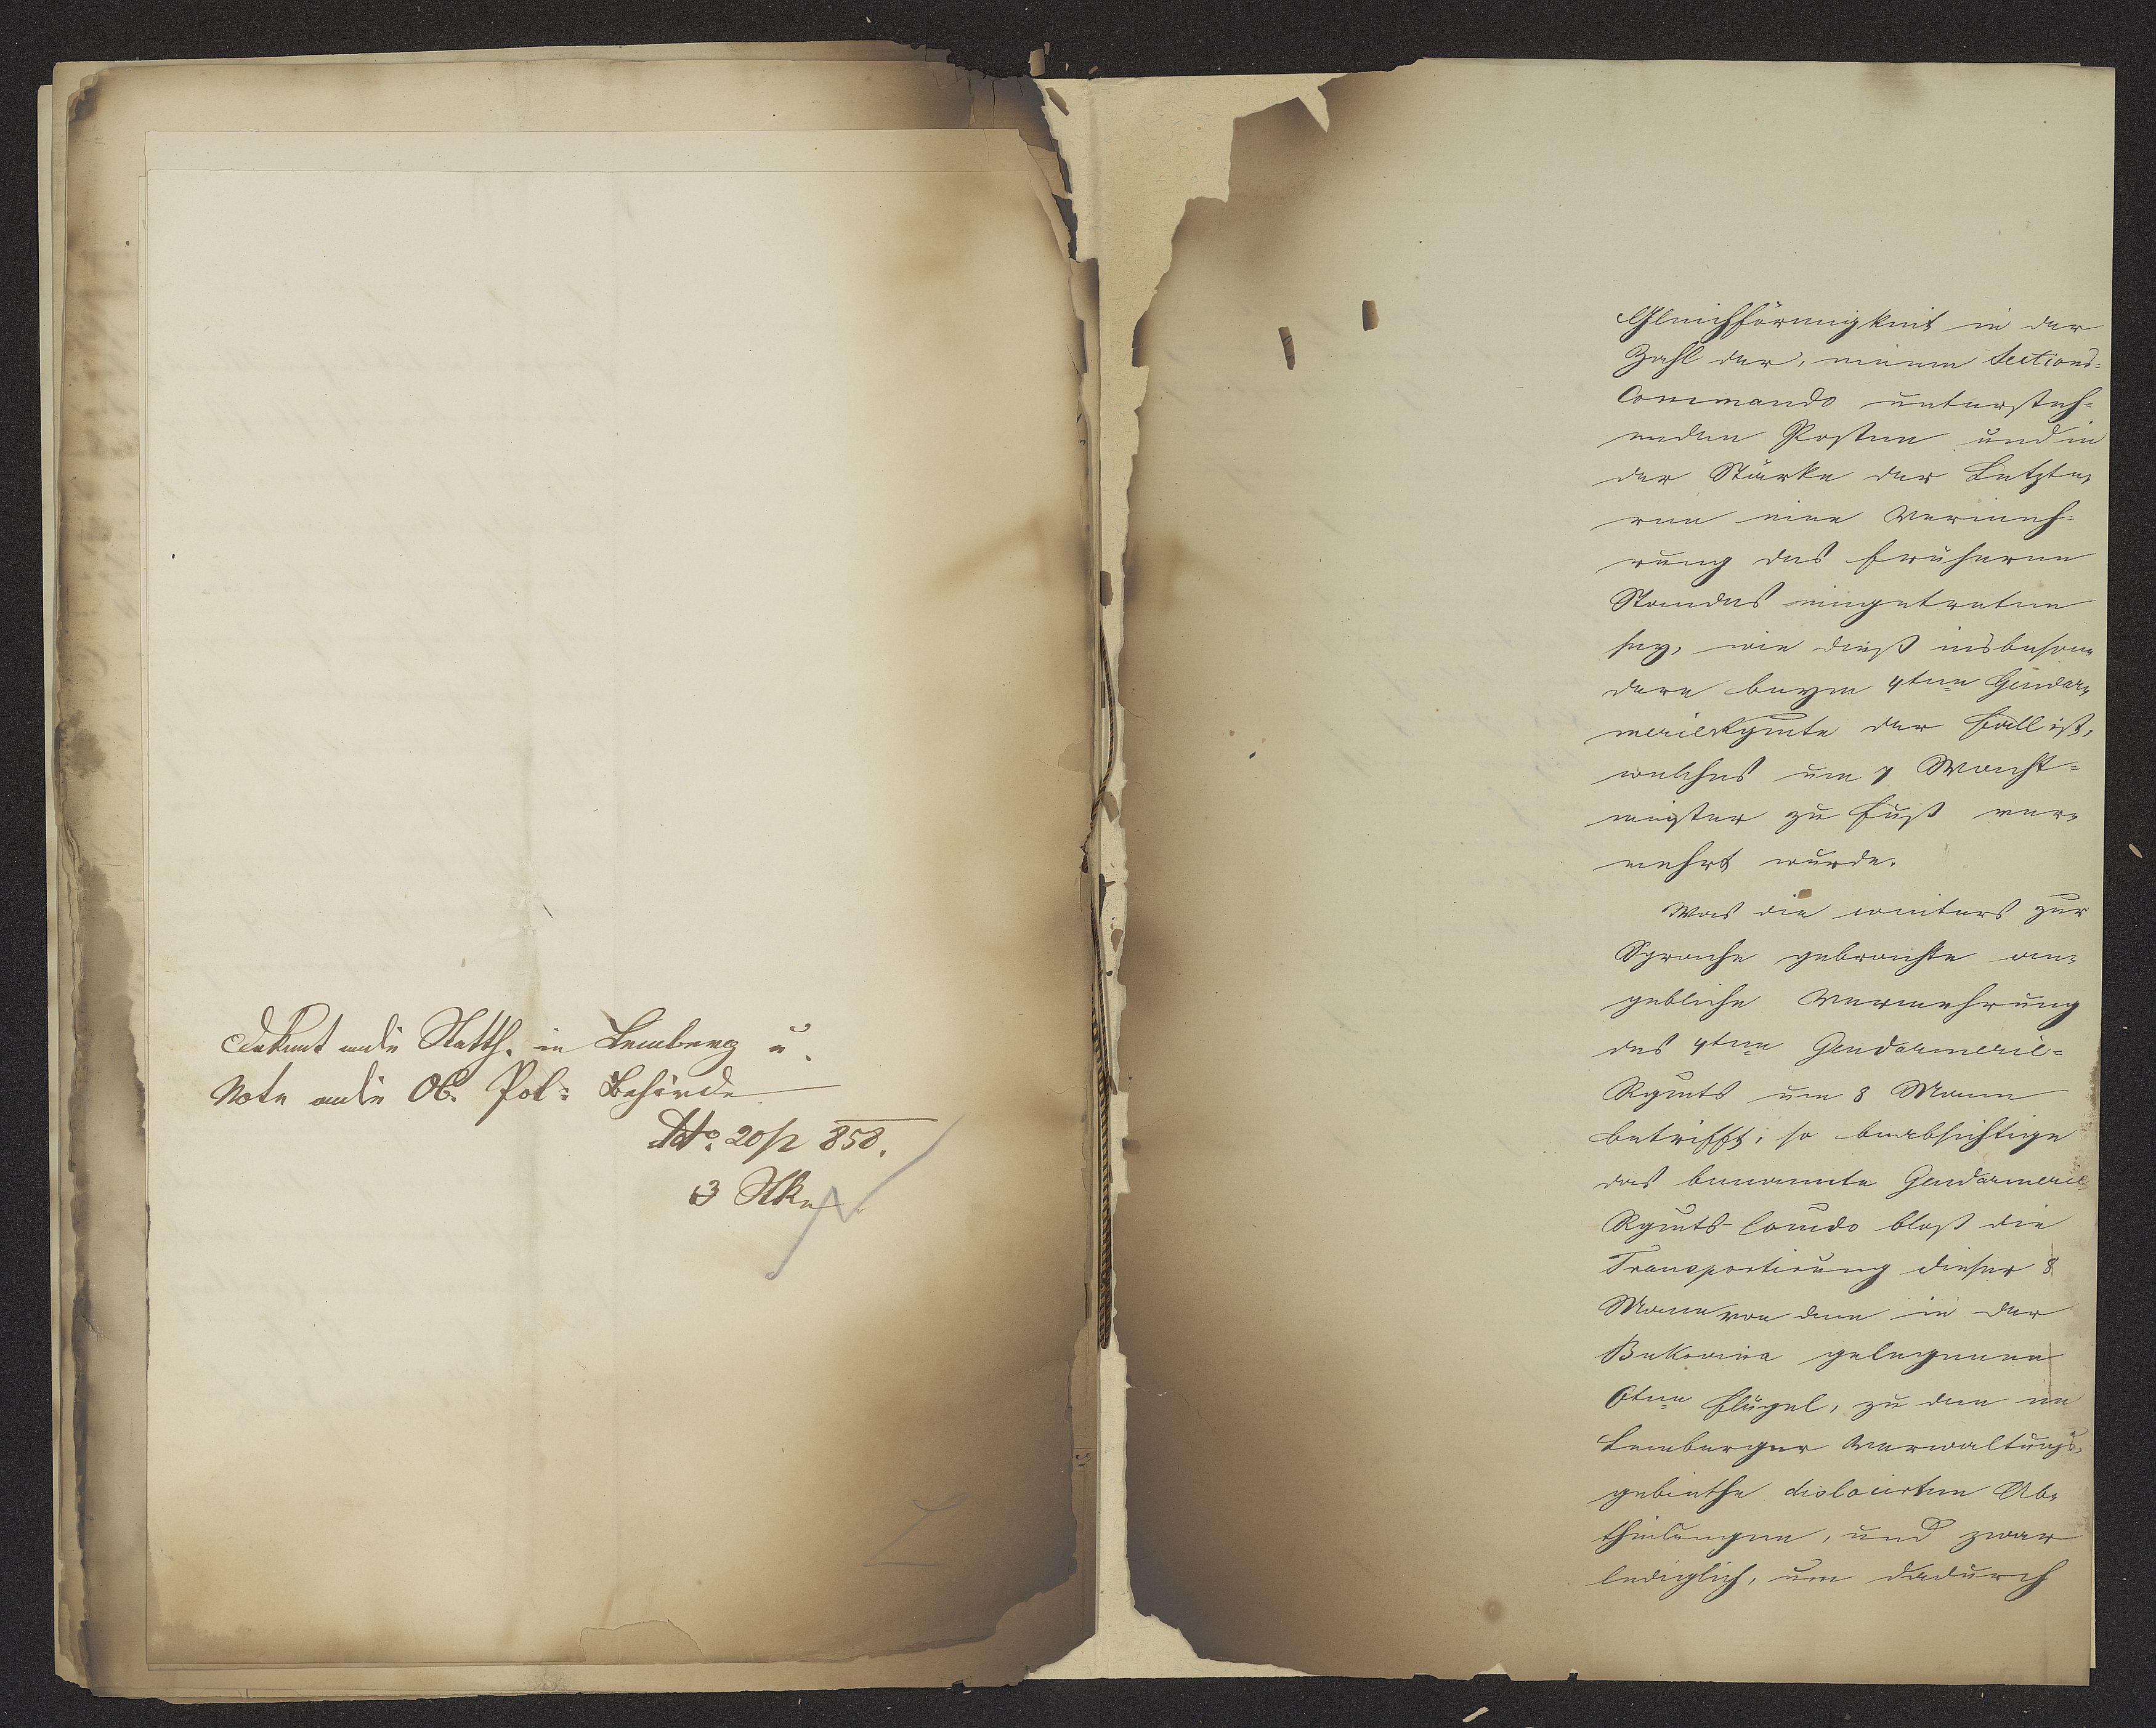 Dekret an die Statth. in Lemberg u.
Note an die Ob. Pol: Behörde
dto. 20/2 858.
3 Stke
Gleichförmigkeit in der
Zahl der, einem Sections-
Commando untersteh-
enden Posten und in
der Stärke der Letzte-
ren eine Vermeh-
rung des früheren
Standes eingetreten
sey, wie dieß insbeson-
dere beym 4ten Gendar-
merieRgmte der Fall ist,
welches um 7 Wacht-
meister zu Fuß ver-
mehrt wurde.
Was die weiters zur
Sprache gebrachte an-
gebliche Vermehrung
des 4ten Gendarmerie-
Rgmts um 8 Mann
betrifft, so beabsichtige
das benannte Gendarmerie
Rgmts-Comdo bloß die
Transportirung dieser 8
Mann von dem in der
Bukowina gelegenen
6ten Flügel, zu den im
Lemberger Verwaltungs-
gebiethe dislocirten Ab-
theilungen, und zwar
lediglich, um dadurch